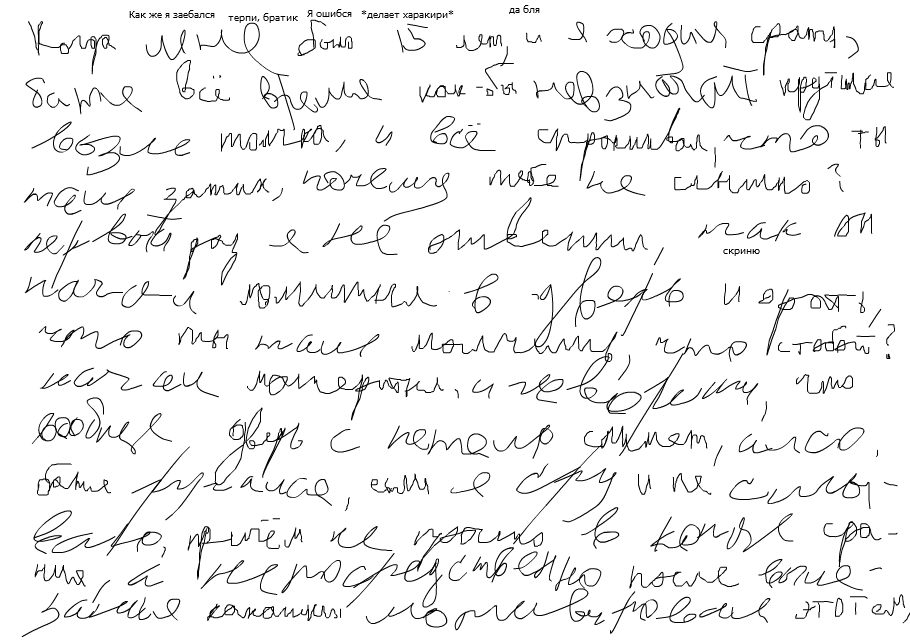 Как же я заебался терпи, братик Я ошибся *делает харакири* да бля
Когда мне было 15 лет, и я ходил срать,
батя всё время как-бы невзначай крутился
возле толчка, и всё спрашивал, что ты
там затих, почему тебе не слышно?
первый раз я не ответил, так он
скриню
начал ломиться в дверь и орать,
что ты там молчишь, что с тобой?
начал материться, и говорить, что
вообще дверь с петель снимет,
батя ругался, если я сру и не смы-
ваю, причём не просто в конце сра-
ния, а непосредственно после выле-
зания какашки мотивировал этотем,